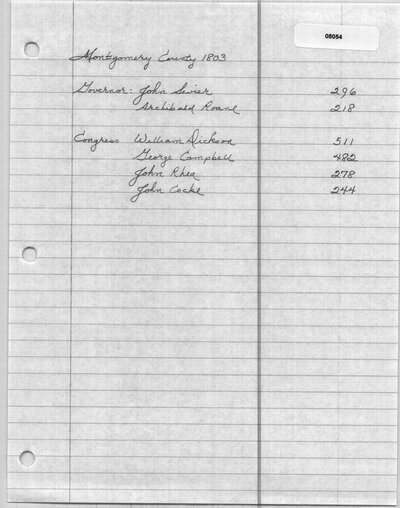 08054
Montgomery County 1803
Governor: John Sevier 296
Archibald Roane 218
Congress William Dickson 511
George Campbell 482
John Rhea 278
John Cocke 244